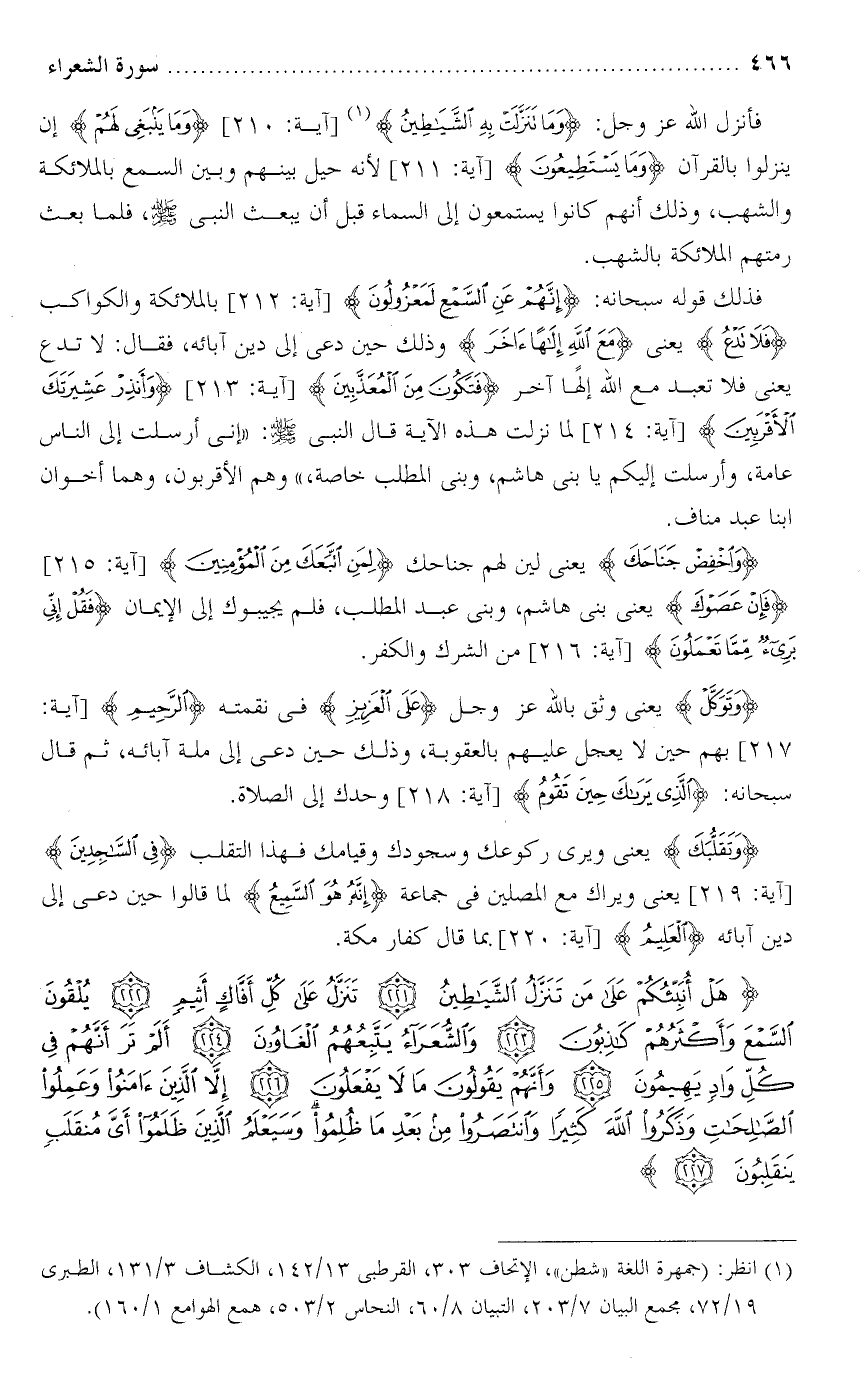 ٤٦٦ ........................................................................ سورة الشعراء
فأنزل الله عز وجل: ﴿وَمَا تَنَزَّلَتْ بِهِ ٱلشَّيَـٰطِينُ﴾(١) [آية: ٢١٠] ﴿وَمَا يَنۢبَغِى لَهُمْ﴾ إن
ينزلوا بالقرآن ﴿وَمَا يَسْتَطِيعُونَ﴾ [آية: ٢١١] لأنه حيل بينهم وبين السمع بالملائكة
والشهب، وذلك أنهم كانوا يستمعون إلى السماء قبل أن يبعث النبى ﷺ، فلما بعث
رمتهم الملائكة بالشهب.
فذلك قوله سبحانه: ﴿إِنَّهُمْ عَنِ ٱلسَّمْعِ لَمَعْزُولُونَ﴾ [آية: ٢١٢] بالملائكة والكواكب
﴿فَلَا نَدْعُ﴾ يعنى ﴿مَعَ ٱللَّهِ إِلَـٰهًا ءَاخَرَ﴾ وذلك حين دعى إلى دين آبائه، فقال: لا تدع
يعنى فلا تعبد مع الله إلهًا آخر ﴿فَتَكُونَ مِنَ ٱلْمُعَذَّبِينَ﴾ [آية: ٢١٣] ﴿وَأَنذِرْ عَشِيرَتَكَ
ٱلْأَقْرَبِينَ﴾ [آية: ٢١٤] لما نزلت هذه الآية قال النبى ﷺ: «إنى أرسلت إلى الناس
عامة، وأرسلت إليكم يا بنى هاشم، وبنى المطلب خاصة،» وهم الأقربون، وهما أخوان
ابنا عبد مناف.
﴿وَٱخْفِضْ جَنَاحَكَ﴾ يعنى لين لهم جناحك ﴿لِمَنِ ٱتَّبَعَكَ مِنَ ٱلْمُؤْمِنِينَ﴾ [آية: ٢١٥]
﴿فَإِنْ عَصَوْكَ﴾ يعنى بنى هاشم، وبنى عبد المطلب، فلم يجيبوك إلى الإيمان ﴿فَقُلْ إِنِّى
بَرِىٓءٌ مِّمَّا تَعْمَلُونَ﴾ [آية: ٢١٦] من الشرك والكفر.
﴿وَتَوَكَّلْ﴾ يعنى وثق بالله عز وجل ﴿عَلَى ٱلْعَزِيزِ﴾ فى نقمته ﴿ٱلرَّحِيمِ﴾ [آية:
٢١٧] بهم حين لا يعجل عليهم بالعقوبة، وذلك حين دعى إلى ملة آبائه، ثم قال
سبحانه: ﴿ٱلَّذِى يَرَىٰكَ حِينَ تَقُومُ﴾ [آية: ٢١٨] وحدك إلى الصلاة.
﴿وَتَقَلُّبَكَ﴾ يعنى ويرى ركوعك وسجودك وقيامك فهذا التقلب ﴿فِى ٱلسَّـٰجِدِينَ﴾
[آية: ٢١٩] يعنى ويراك مع المصلين فى جماعة ﴿إِنَّهُۥ هُوَ ٱلسَّمِيعُ﴾ لما قالوا حين دعى إلى
دين آبائه ﴿ٱلْعَلِيمُ﴾ [آية: ٢٢٠] بما قال كفار مكة.
﴿هَلْ أُنَبِّئُكُمْ عَلَىٰ مَن تَنَزَّلُ ٱلشَّيَـٰطِينُ ٢٢١ تَنَزَّلُ عَلَىٰ كُلِّ أَفَّاكٍ أَثِيمٍ ٢٢٢ يُلْقُونَ
ٱلسَّمْعَ وَأَكْثَرُهُمْ كَـٰذِبُونَ ٢٢٣ وَٱلشُّعَرَآءُ يَتَّبِعُهُمُ ٱلْغَاوُۥنَ ٢٢٤ أَلَمْ تَرَ أَنَّهُمْ فِى
كُلِّ وَادٍ يَهِيمُونَ ٢٢٥ وَأَنَّهُمْ يَقُولُونَ مَا لَا يَفْعَلُونَ ٢٢٦ إِلَّا ٱلَّذِينَ ءَامَنُوا۟ وَعَمِلُوا۟
ٱلصَّـٰلِحَـٰتِ وَذَكَرُوا۟ ٱللَّهَ كَثِيرًا وَٱنتَصَرُوا۟ مِنۢ بَعْدِ مَا ظُلِمُوا۟ ۗ وَسَيَعْلَمُ ٱلَّذِينَ ظَلَمُوٓا۟ أَىَّ مُنقَلَبٍ
يَنقَلِبُونَ ٢٢٧﴾
(١) انظر: (جمهرة اللغة «شطن»، الإتحاف ٣٠٣، القرطبى ١٤٢/١٣، الكشاف ١٣١/٣، الطبرى
٧٢/١٩، مجمع البيان ٢٠٣/٧، التبيان ٦٠/٨، النحاس ٥٠٣/٢، همع الهوامع ١٦٠/١).